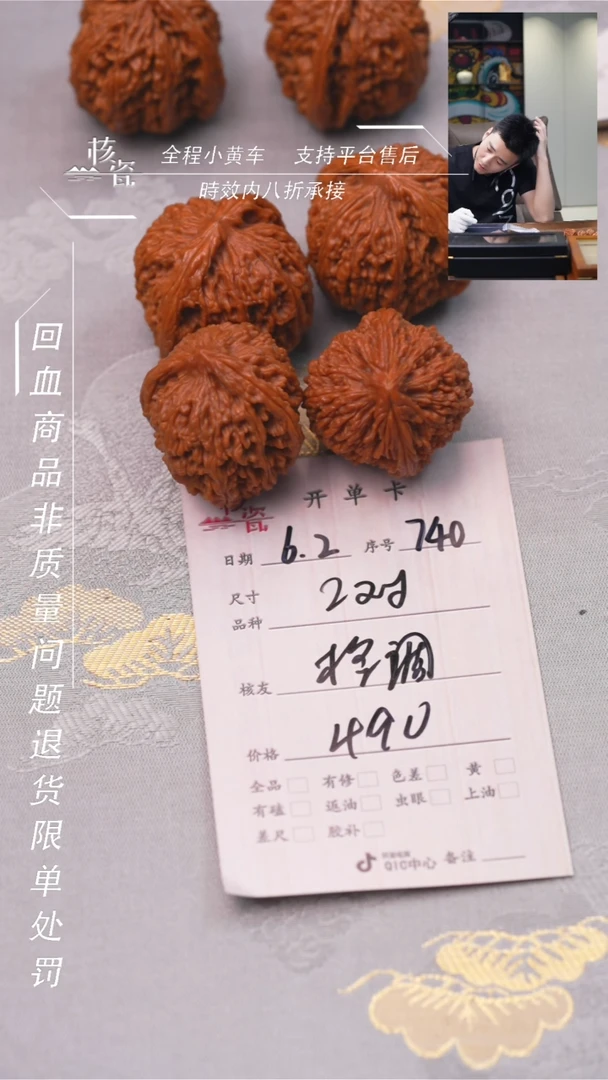 核瓷
全程小黄车 支持平台售后
時效内八折承接
回血商品非质量问题退货限单处罚
瓷 开单卡
日期 6.2 序号 740
尺寸 22对
品种
核友 格调
价格 490
全品 有修 色差 黄
有磕 返油 虫眼 上油
差尺 胶补
QIC中心 备注